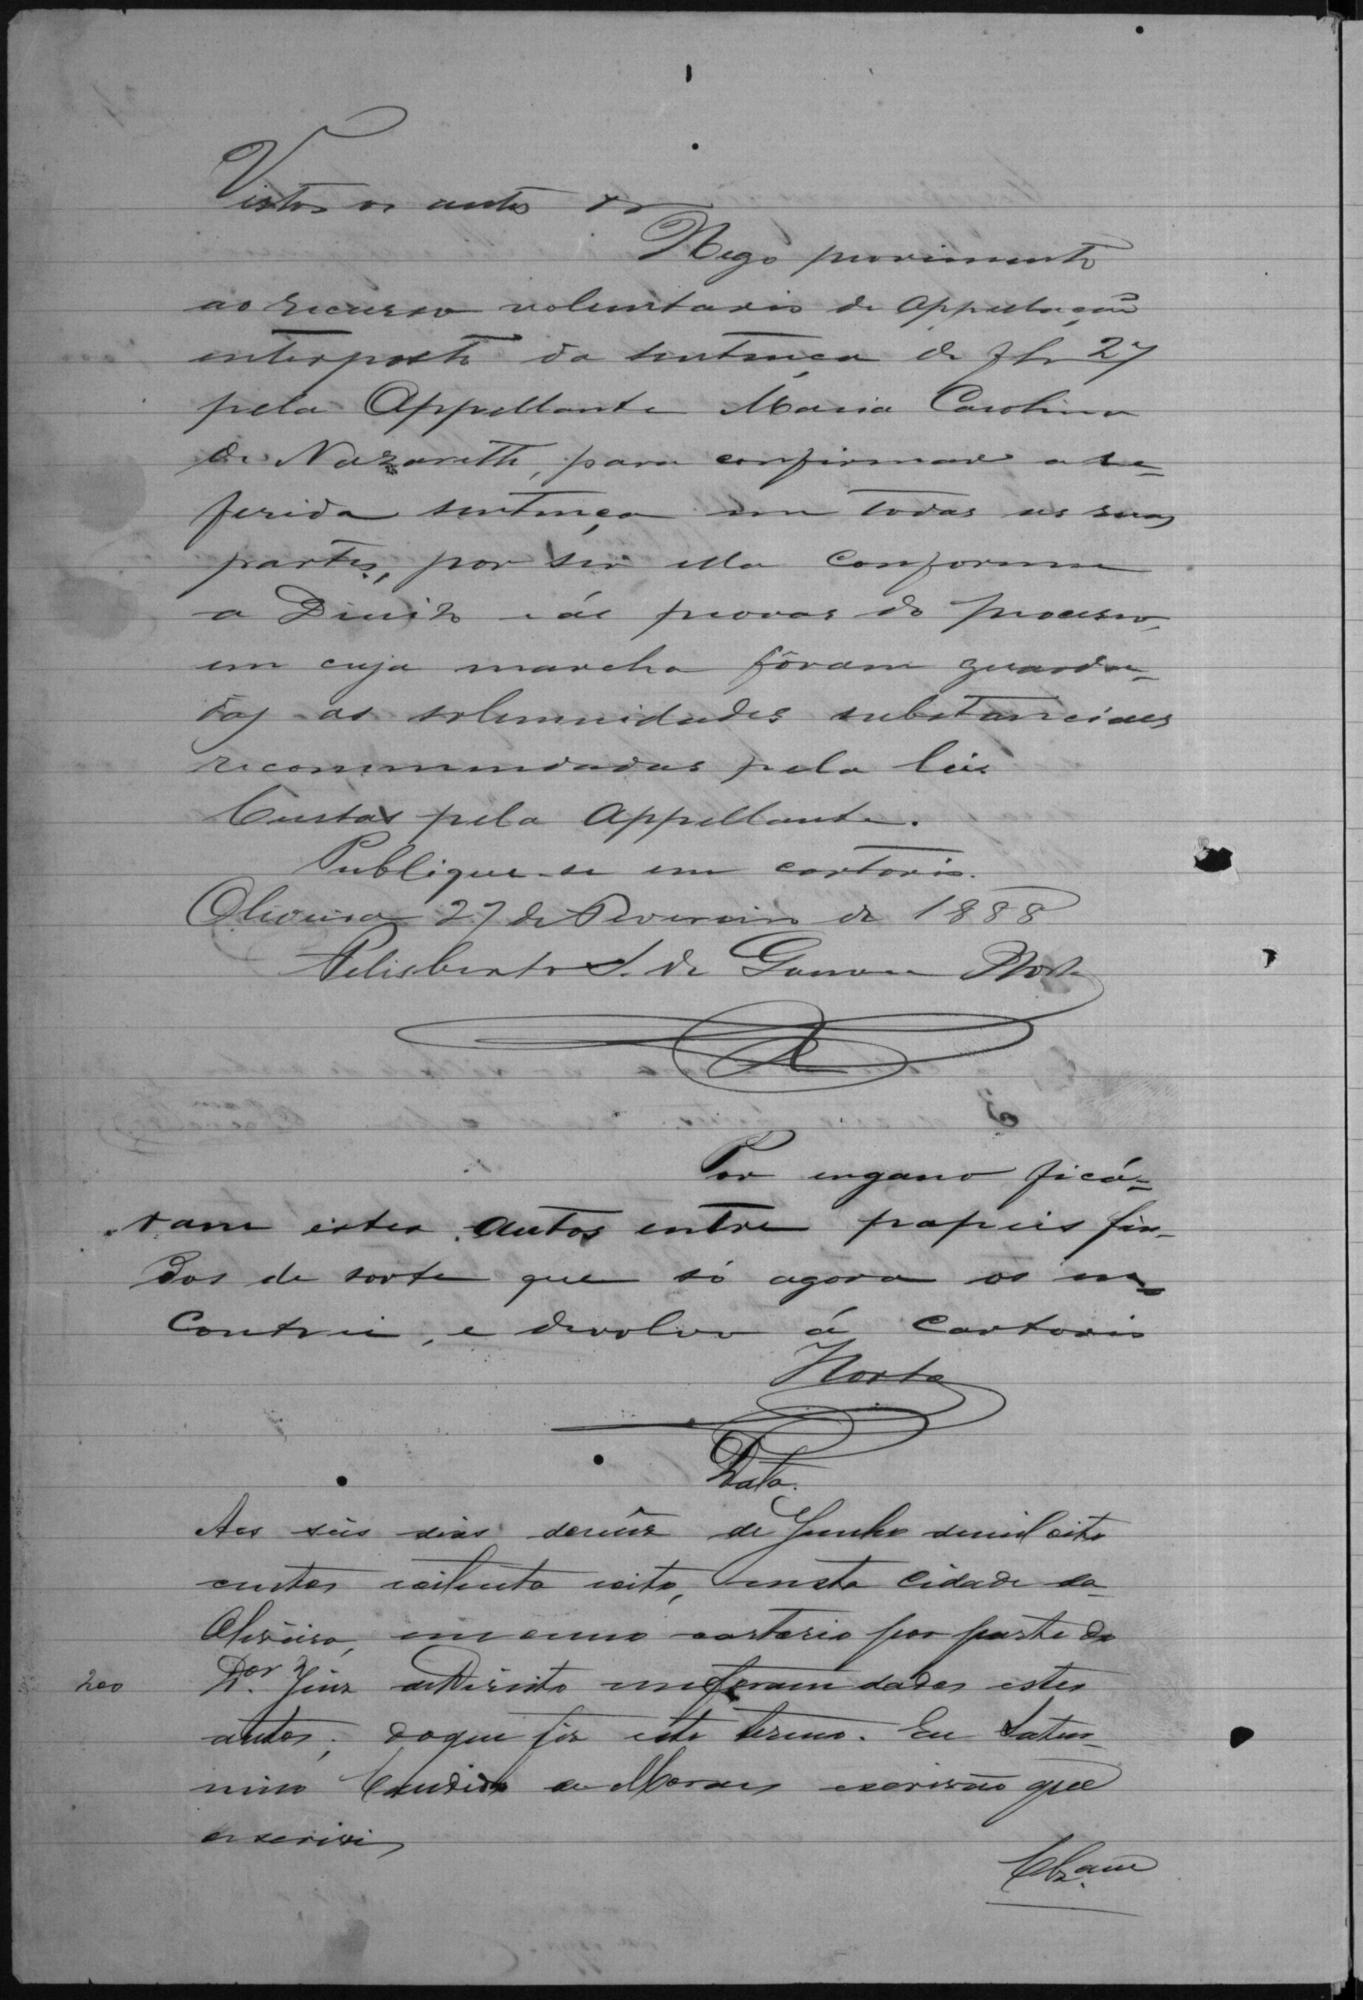 Vistos os autos &
Nego provimento
ao recurso voluntario de appellação
interposto da sentença de fls 27
pela Appellante Maria Carolina
de Nazareth, para confirmar a re=
ferida sentença em todas as suas
partes, por ser ella conforme
a Direito e ás provas do processo,
em cuja marcha fôram guarda=
das as solemnidades substanciaes
recommendadas pela lei.
Custas pela Appellante.
Publique-se em cartorio.
Oliveira 27 de Fevereiro de 1888
Felisberto S. de Horta
Por engano ficá=
ram estes autos entre papeis fin-
dos de sorte que só agora os en=
contrei, e devolvo á cartorio
Horta
Data.
Aos seis dias do mez de Junho de mil oito
centos oitenta oito, nesta cidade da
Oliveira, em meu cartorio por parte do
200 Dor. Juiz de Direito me foram dados estes
autos; do que fiz este termo. Eu Satur-
nino Candido de Moraes escrivão que
escrevi